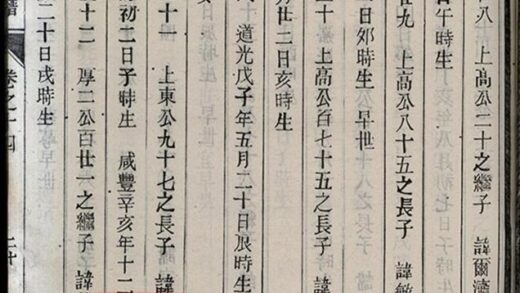 十八 上高公二十之繼子 諱爾濟
日午時生
九 上高公八十五之長子 諱敏
二日卯時生早世
十 上高公百七十五之長子 諱
廿二日亥時生
道光戊子年五月二十日辰時生
十一 上東公九十七之長子 諱
初二日子時生 咸豐辛亥年十二
十二 厚二公百廿一之繼子 諱
二十日戌時生
譜 卷之十四 二十